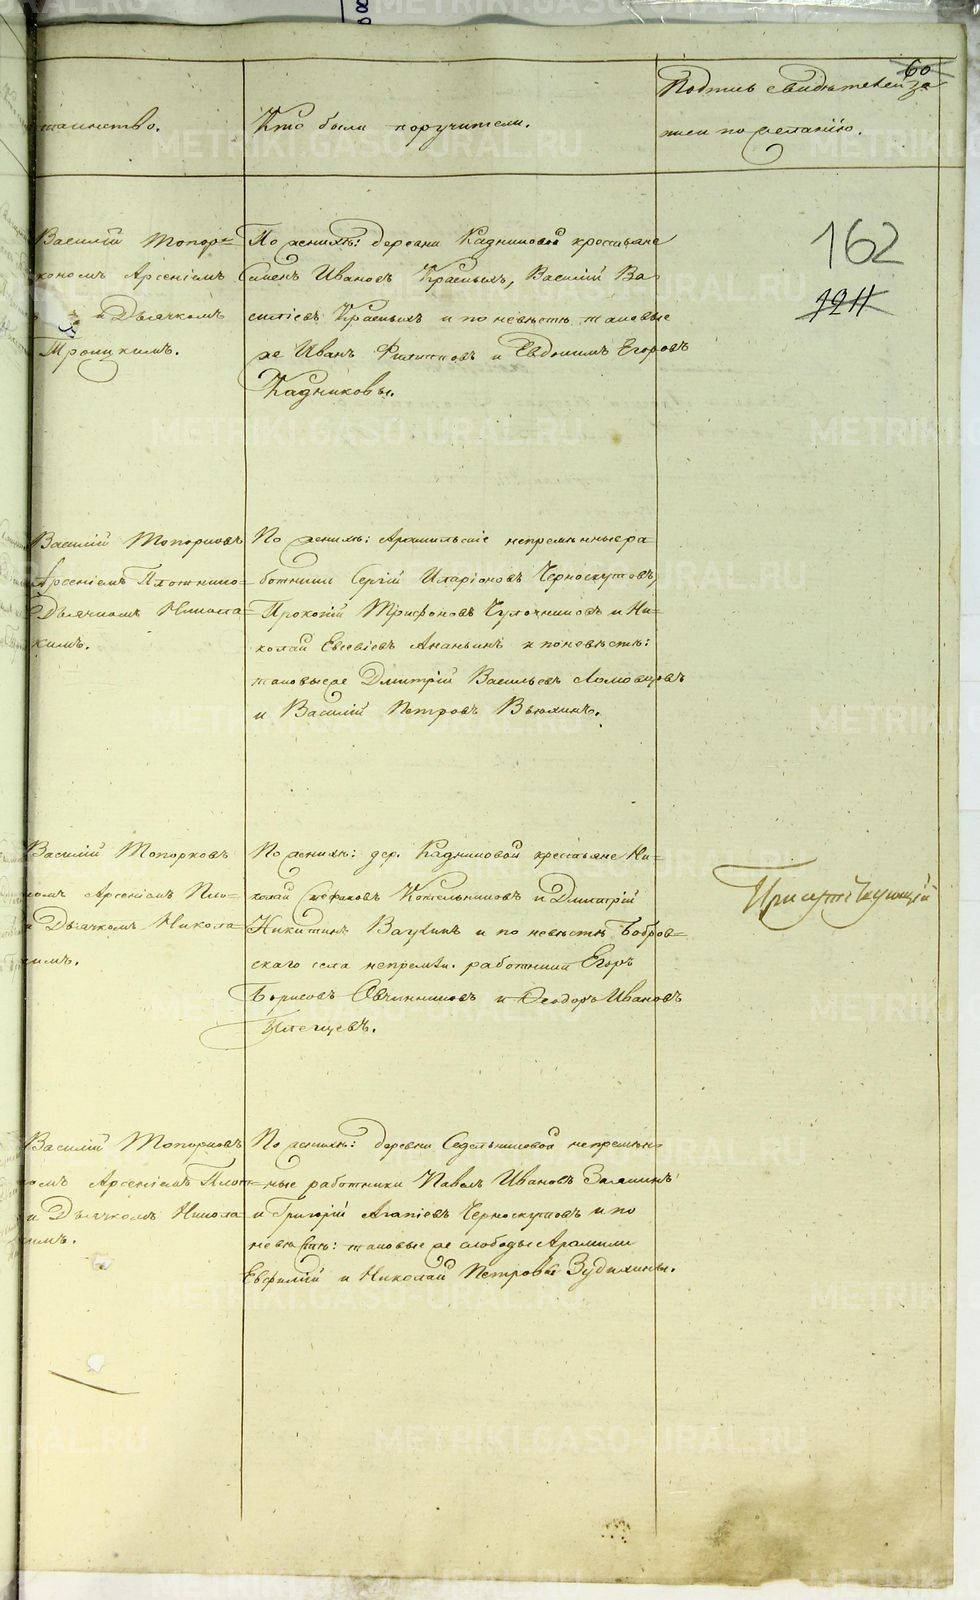 60
таинство.
Кто были поручители.
Подпись свидѣтелей за
писи по желанію.
162
1211
Василій Топор=
кономъ Арсеніемъ
и Дьячкомъ
Троицкимъ.
По женихѣ: деревни Кадниковой крестьяне
Семенъ Ивановъ Красныхъ, Василій Ва
силіевъ Красныхъ и по невѣстѣ таковые
же Иванъ Филиповъ и Евдокимъ Егоровъ
Кадниковы.
Василій Топорковъ
Арсеніемъ Плотнико
Дьячкомъ Никола=
кимъ.
По женихѣ: Арамильскіе непремѣнные ра
ботники Сергій Иларіоновъ Черноскутовъ,
Прокопій Трифоновъ Чулочниковъ и Ни=
колай Евсевіевъ Ананьинъ и по невѣстѣ:
таковые же Дмитрій Васильевъ Ломовцовъ
и Василій Петровъ Вьюхинъ.
Василій Топорковъ
номъ Арсеніемъ Пло=
и Дьячкомъ Никола=
кимъ.
По женихѣ: дер. Кадниковой крестьяне Ни=
колай Стефановъ Котельниковъ и Димитрій
Никитинъ Ваулинъ и по невѣстѣ Бобров=
скаго села непремѣн. работники Егоръ
Борисовъ Овчинниковъ и Ѳеодоръ Ивановъ
Василій Топорковъ
номъ Арсеніемъ Плот=
и Дьячкомъ Никола=
кимъ.
По женихѣ: деревни Седельниковой непремѣн=
ные работники Павелъ Ивановъ
и Григорій Агапіевъ Черноскутовъ и по
невѣстѣ: таковые же слободы Арамили
Евфимій и Николай Петровы Зудихины.
METRIKI.GASO-URAL.RU